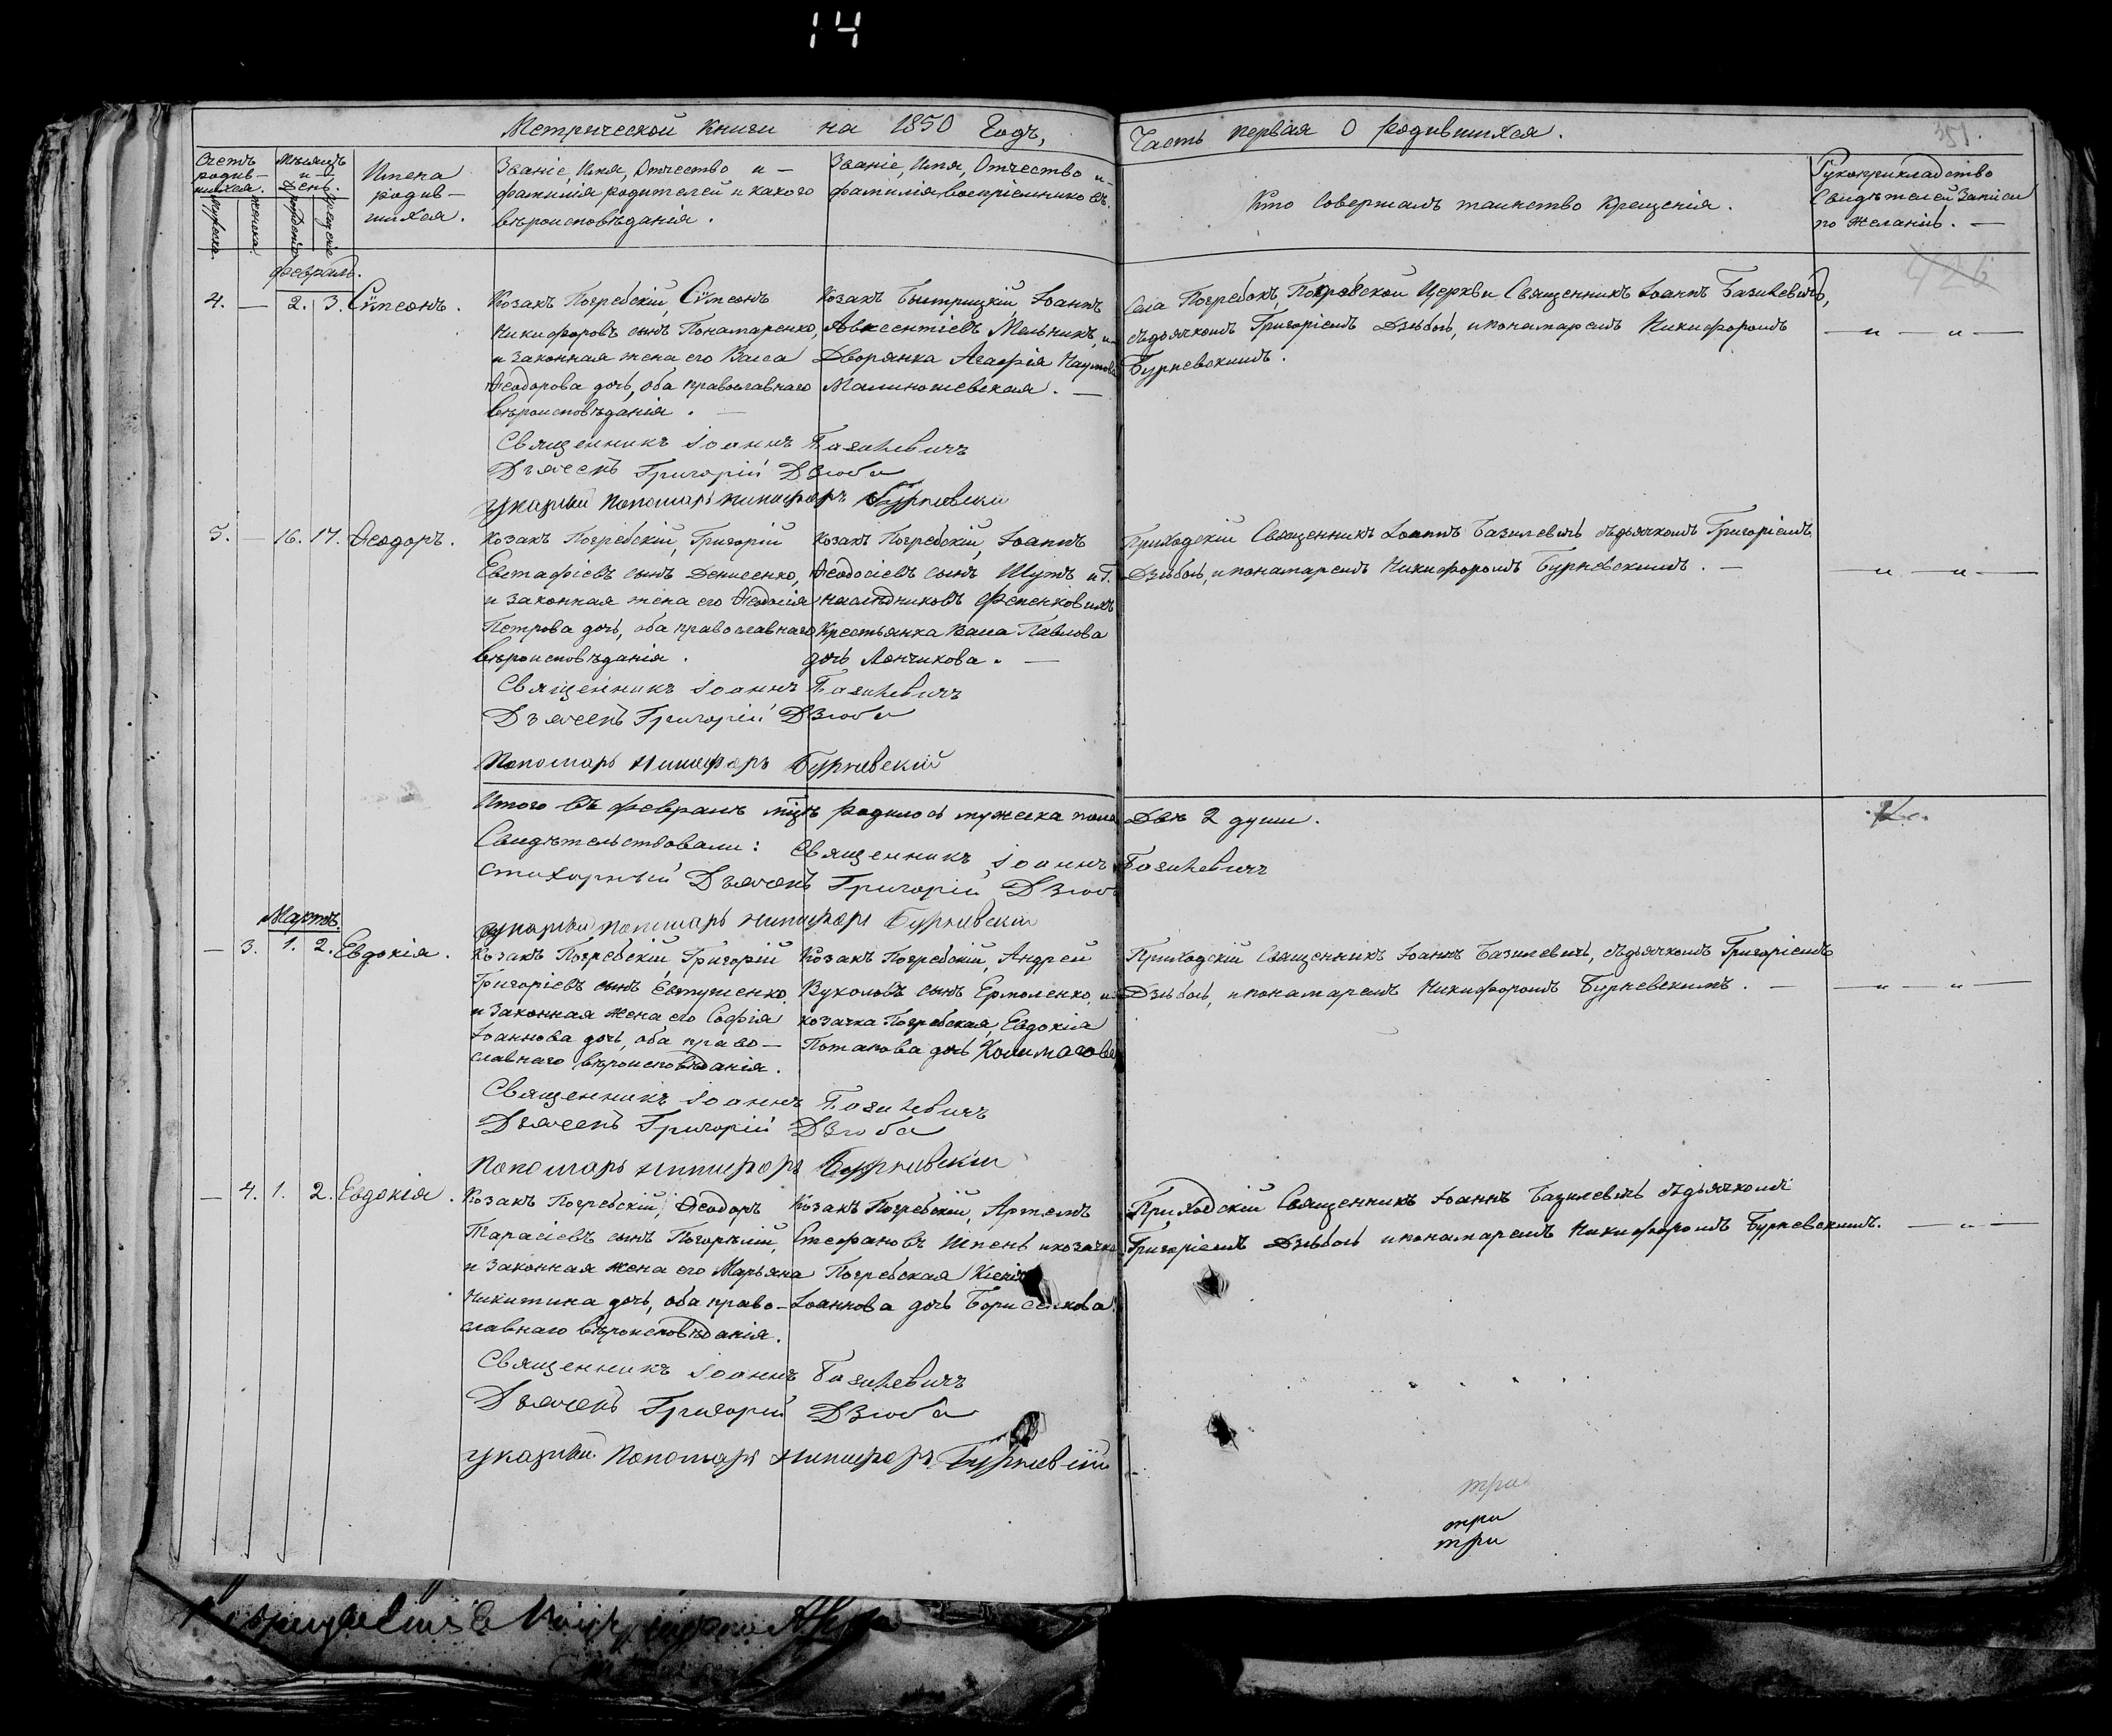 14
Метрической Книги на 1850 Годъ,
Часть первая О родившихся.
351.
Счетъ родив-
шихся.
Мѣсяцъ
и
День.
Имена
родив-
шихся.
Званіе, Имя, Отчество и —
фамилія родителей и какого
вѣроисповѣданія.
Званіе, Имя, Отчество и
фамилія воспріемниковъ.
Кто Совершалъ таинство Крещенія.
Рукоприкладство
Свидѣтелей Записи
по Желанію. —
Мужеска
Женска
рожденія
крещенія
Февраль.
426
4. — 2. 3. Сѵмеонъ.
Козакъ Погребскій, Сѵмеонъ
Никифоровъ сынъ Понамаренко,
и Законная жена его Васса
Ѳеодорова дочь, оба православнаго
вѣроисповѣданія. —
Козакъ Быстрицкій, Іоаннъ
Авксентіевъ Мельникъ, и
Дворянка Агафія Наумова
Малиношевская. —
Села Погребокъ, Покровской Церкви Священникъ Іоаннъ Базилевичъ,
съдьячкомъ Григоріемъ Дзюбою, ипонамаремъ Никифоромъ
Бурневскимъ.
— „ — „ —
Священникъ Іоаннъ Базилевичъ
Дьячекъ Григорій Дзюба
указный Пономарь Никифоръ Бурневскій
5. — 16. 17. Ѳеодоръ.
Козакъ Погребскій, Григорій
Евстафіевъ сынъ Денисенко,
и Законная жена его Ѳеодосія
Петрова дочь, оба православнаго
вѣроисповѣданія.
Козакъ Погребскій, Іоаннъ
Ѳеодосіевъ сынъ Шутъ и Г.
наслѣдниковъ Фененковыхъ
Крестьянка Васса Павлова
дочь Лончикова. —
Приходскій Священникъ Іоаннъ Базилевичъ съдьячкомъ Григоріемъ
Дзюбою, ипонамаремъ Никифоромъ Бурневскимъ. —
— „ — „ —
Священникъ Іоаннъ Базилевичъ
Дьячекъ Григорій Дзюба
Пономарь Никифоръ Бурневскій
Итого въ Февралѣ мцѣ родилось мужеска пола Двѣ 2 души.
Свидѣтельствовали: Священникъ Іоаннъ Базилевичъ
Стихарный Дьячекъ Григорій Дзюба
указный пономарь Никифоръ Бурневскій
Мартъ.
— 3. 1. 2. Евдокія.
Козакъ Погребскій, Григорій
Григоріевъ сынъ Евтушенко,
и Законная Жена его Софія
Іоаннова дочь, оба право—
славнаго вѣроисповѣданія.
Козакъ Погребскій, Андрей
Вуколовъ сынъ Ермоленко, и
козачка Погребская, Евдокія
Потапова дочь
Приходскій Священникъ Іоаннъ Базилевичъ, съдьячкомъ Григоріемъ
Дзюбою, ипонамаремъ Никифоромъ Бурневскимъ. —
— „ — „ —
Священникъ Іоаннъ Базилевичъ
Дьячекъ Григорій Дзюба
Пономарь Никифоръ Бурневскій
— 4. 1. 2. Евдокія.
Козакъ Погребскій, Ѳеодоръ
Тарасіевъ сынъ Погорѣлій,
и Законная жена его Марьяна
Никитина дочь, оба право—
славнаго вѣроисповѣданія.
Козакъ Погребскій, Артемъ
Стефановъ Шпень икозачка
Погребская Ксенія
Іоаннова дочь Борисенкова.
Приходскій Священникъ Іоаннъ Базилевичъ съдьячкомъ
Григоріемъ Дзюбою ипонамаремъ Никифоромъ Бурневскимъ.
— „ —
Священникъ Іоаннъ Базилевичъ
Дьячекъ Григорій Дзюба
указный Пономарь Никифоръ Бурневскій
три
три
три